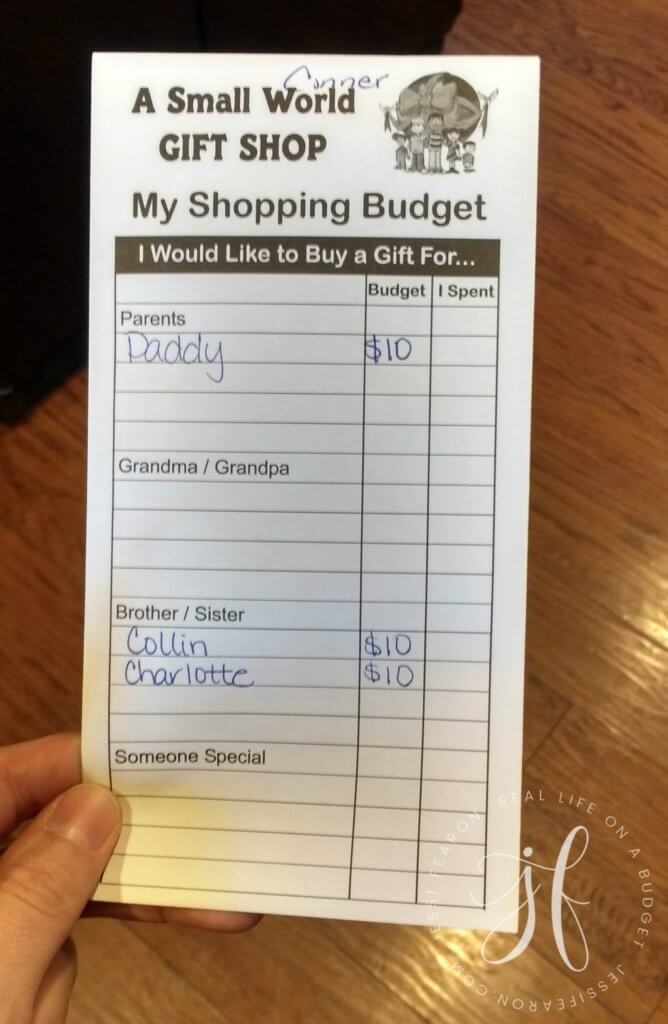 Conner
A Small World
GIFT SHOP
My Shopping Budget
I Would Like to Buy a Gift For...
Budget I Spent
Parents
Daddy $10
Grandma / Grandpa
Brother / Sister
Collin $10
Charlotte $10
Someone Special
jf
JESSI FEARON REAL LIFE ON A BUDGET JESSIFEARON.COM